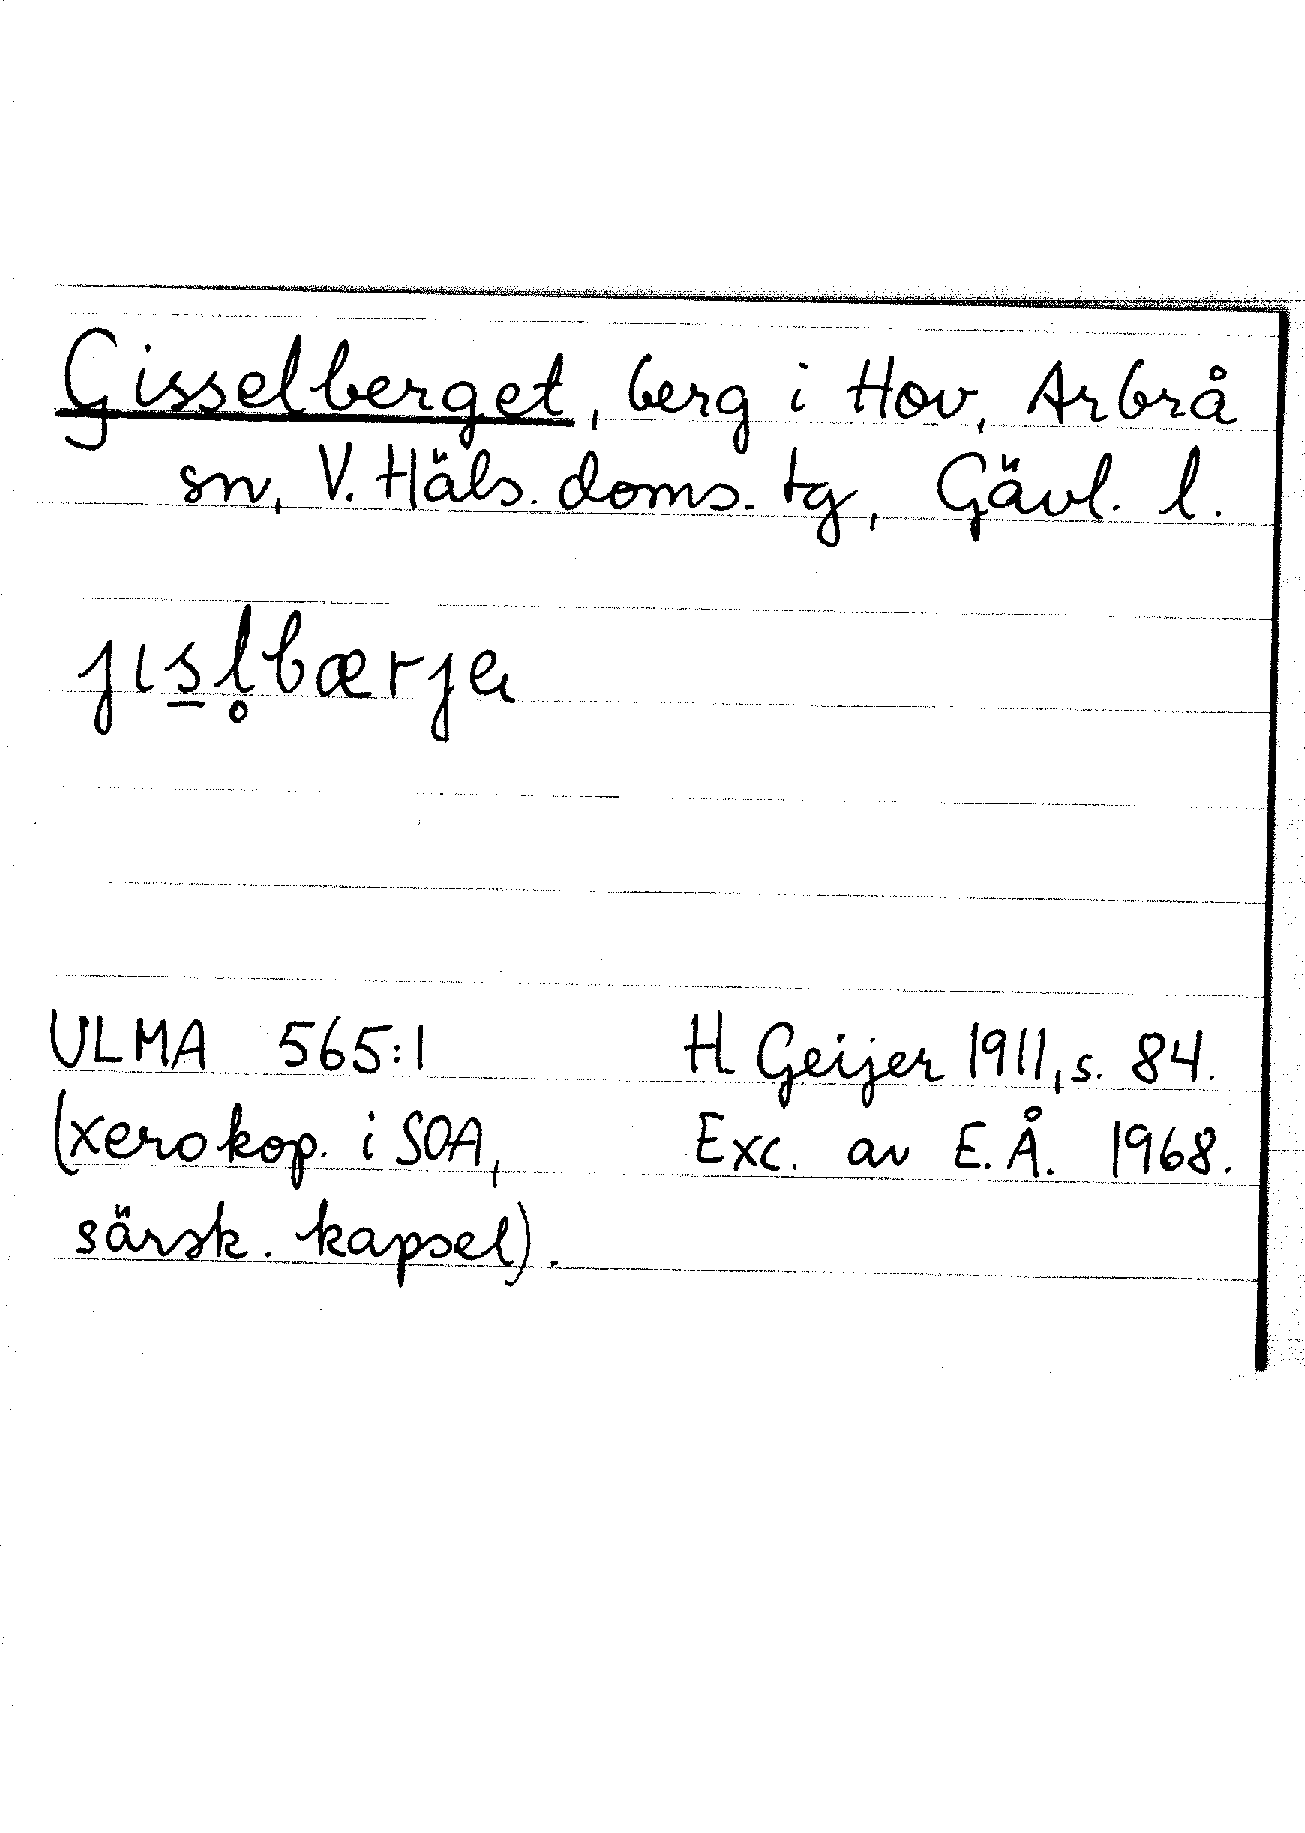 Gisselberget, berg i Hov, Arbrå
sn, V. Häls. doms. tg, Gävl. l.
jıs̲l̥bærjα
ULMA 565:1
(xerokop. i SOA,
särsk. kapsel).
H Geijer 1911, s. 84.
Exc. av E.Å. 1968.